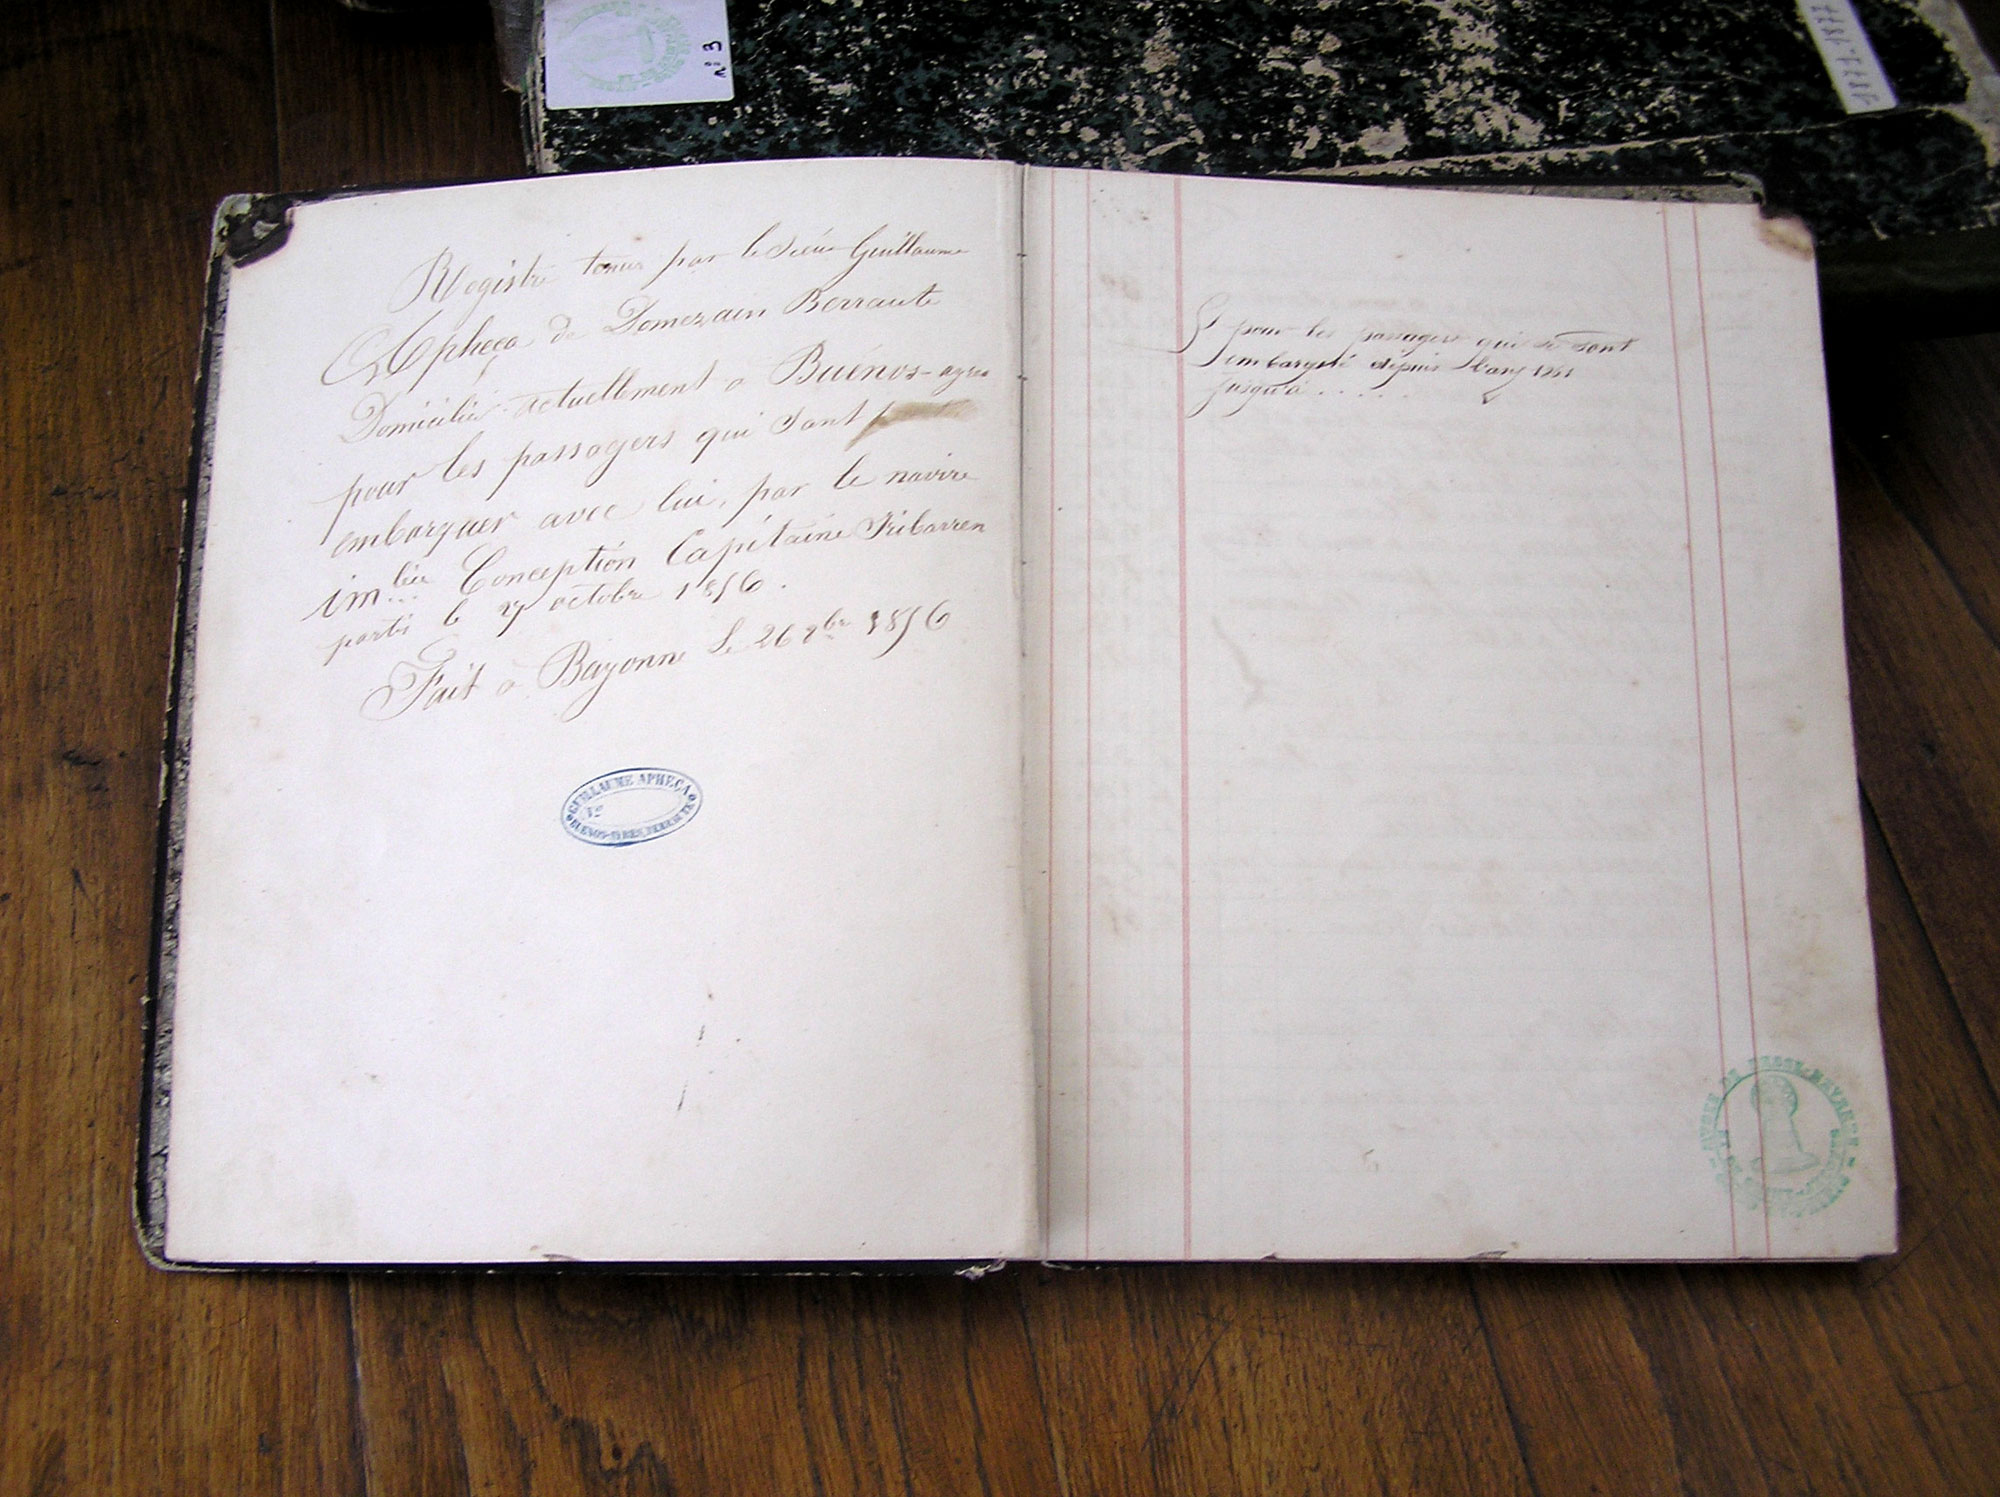 n° 3
Registre tenue par le Sieur Guillaume
Apheça de Domezain Berraute
Domicilié actuellement a Buénos-ayres
pour les passagers qui sont
embarquer avec lui, par le navire
im.lée Conception Capitaine Iribarren
partis le 27 octobre 1856.
Fait a Bayonne Le 26 8bre 1856
GUILLAUME APHEÇA
BUENOS-AYRES, BERRAUTE
pour les passagers qui se sont
embarqué depuis Mars
jusqu'à . . . . .
MUSÉE DE BASSE-NAVARRE